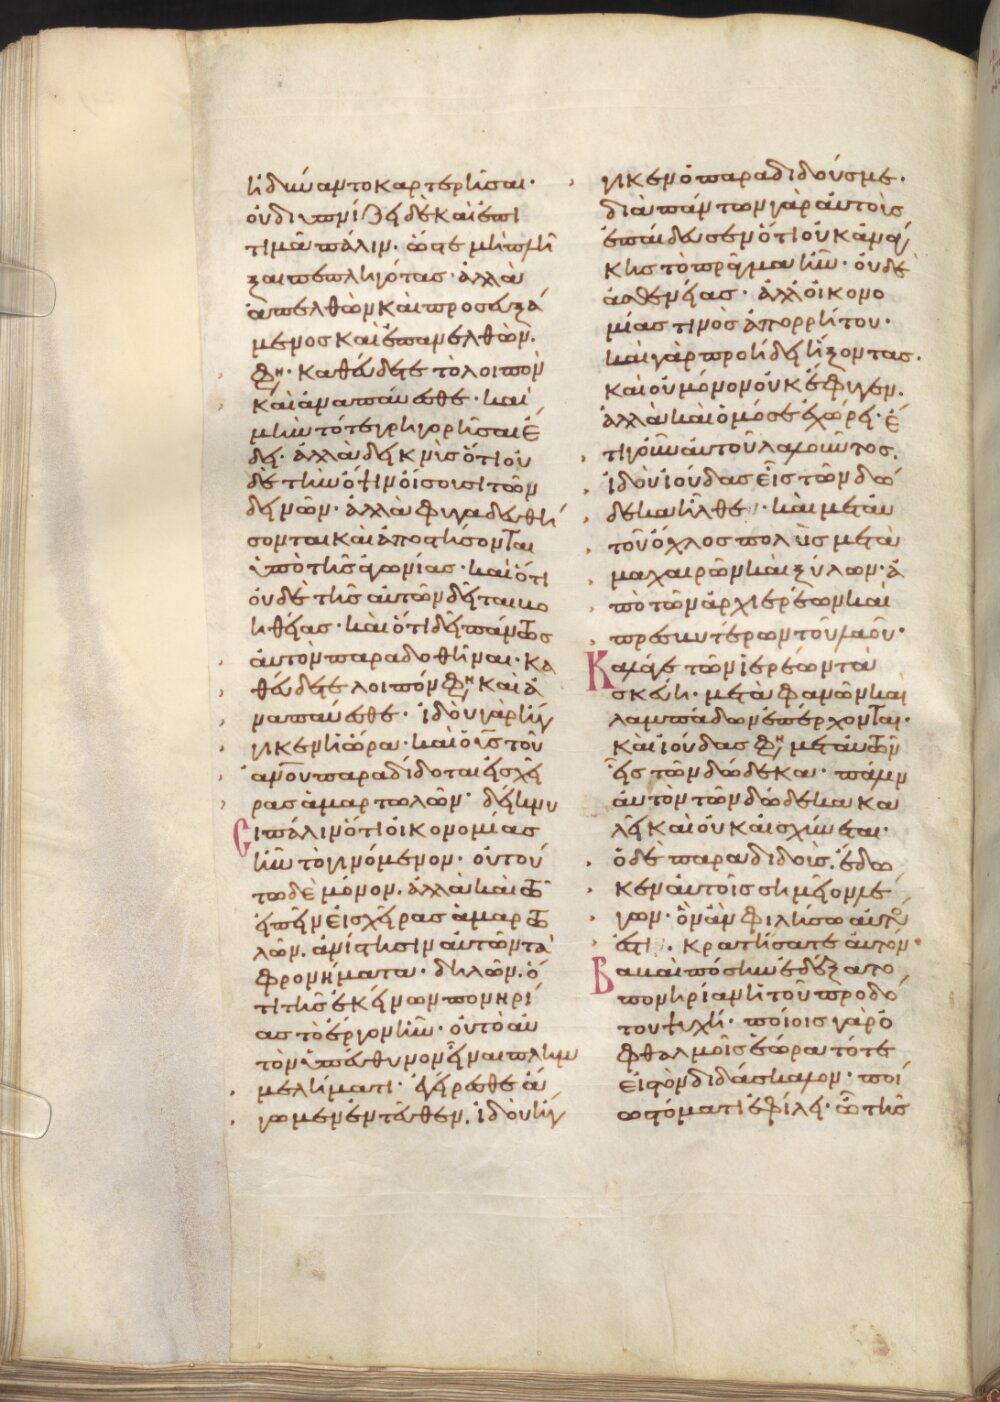 ἠδύναντο καρτερῆσαι·
οὐ διυπνίζει δὲ καὶ ἐπι
τιμᾶ πάλιν· ὥστε μὴ πλῆ
ξαι πεπληγότας· ἀλλὰ
ἀπελθὼν καὶ προσευξά
μενος καὶ ἐπανελθὼν·
φη· καθεύδετε τὸ λοιπὸν
καὶ ἀναπαύεσθε· καὶ
μὴν τότε γρηγορῆσαι ἔ
δει· ἀλλὰ δεικνὺς ὅτι οὐ
δὲ τὴν ὄψιν οἴσουσι τῶν
δεινῶν· ἀλλὰ φυγαδευθή
σονται καὶ ἀποστήσονται
ὑπὸ τῆς ἀγωνίας· καὶ ὅτι
οὐδὲ τῆς αὐτῶν δεῖται βο
ηθείας· καὶ ὅτι δεῖ πάντως
αὐτὸν παραδοθῆναι· κα
θεύδετε λοιπόν φη καὶ ἀ
ναπαύεσθε· ἰδοὺ γὰρ ἤγ
γικεν ἡ ὥρα· καὶ ὁ υς τοῦ
ανου παραδίδοται εἰς χεῖ
ρας ἁμαρτωλῶν· δείκνυ
σι πάλιν ὅτι οἰκονομίας
ἦν τὸ γινόμενον· οὐ τοῦ
το δὲ μόνον· ἀλλὰ καὶ τῶ
εἰπεῖν εἰς χεῖρας ἁμαρτω
λῶν· ἀνίστησιν αὐτῶν τὰ
φρονήματα· δηλῶν· ὅ
τι τῆς ἐκείνων πονηρί
ας τὸ ἔργον ἦν· οὐ τὸ αὐ
τὸν ὑπεύθυνον εἶναι πλημ
μελήματι· ἐγείρεσθε ἄ
γωμεν ἐντεῦθεν· ἰδοὺ ἤγ
γικεν ὁ παραδιδούς με·
διὰ πάντων γὰρ αὐτοὺς
ἐπαίδευσεν ὅτι οὐκ ἀνάγ
κης τὸ πρᾶγμα ἦν· οὐδὲ
ἀσθενείας· ἀλλ' οἰκονο
μίας τινὸς ἀπορρήτου·
καὶ γὰρ προῄδει ἥξοντας·
καὶ οὐ μόνον οὐκ ἔφυγεν·
ἀλλὰ καὶ ὁμόσε ἐχώρει· ἔ
τι γοῦν αὐτοῦ λαλοῦντος·
ἰδοὺ ἰούδας εἷς τῶν δώ
δεκα ἦλθε· καὶ μετ' αὐ
τοῦ ὄχλος πολὺς μετὰ
μαχαιρῶν καὶ ξύλων· ἀ
πὸ τῶν ἀρχιερέων καὶ
πρεσβυτέρων τοῦ λαοῦ·
Καλά γε τῶν ἱερέων τὰ
σκεύη· μετὰ φανῶν καὶ
λαμπάδων ἐπέρχονται·
καὶ ἰούδας φη μετ' αὐτῶν
εἷς τῶν δώδεκα· πάλιν
αὐτὸν τῶν δώδεκα κα
λεῖ καὶ οὐκ αἰσχύνεται·
ὁ δὲ παραδιδοὺς· ἔδω
κεν αὐτοῖς σημεῖον λέ
γων· ὃν ἂν φιλήσω αὐτός
ἐστι· κρατήσατε αὐτόν·
Βαβαὶ πόσην ἐδέξατο
πονηρίαν ἡ τοῦ προδό
του ψυχή· ποίοις γὰρ ὀ
φθαλμοῖς ἑώρα τότε
εἰς τὸν διδάσκαλον· ποί
ω στόματι ἐφίλει· ὢ τῆς